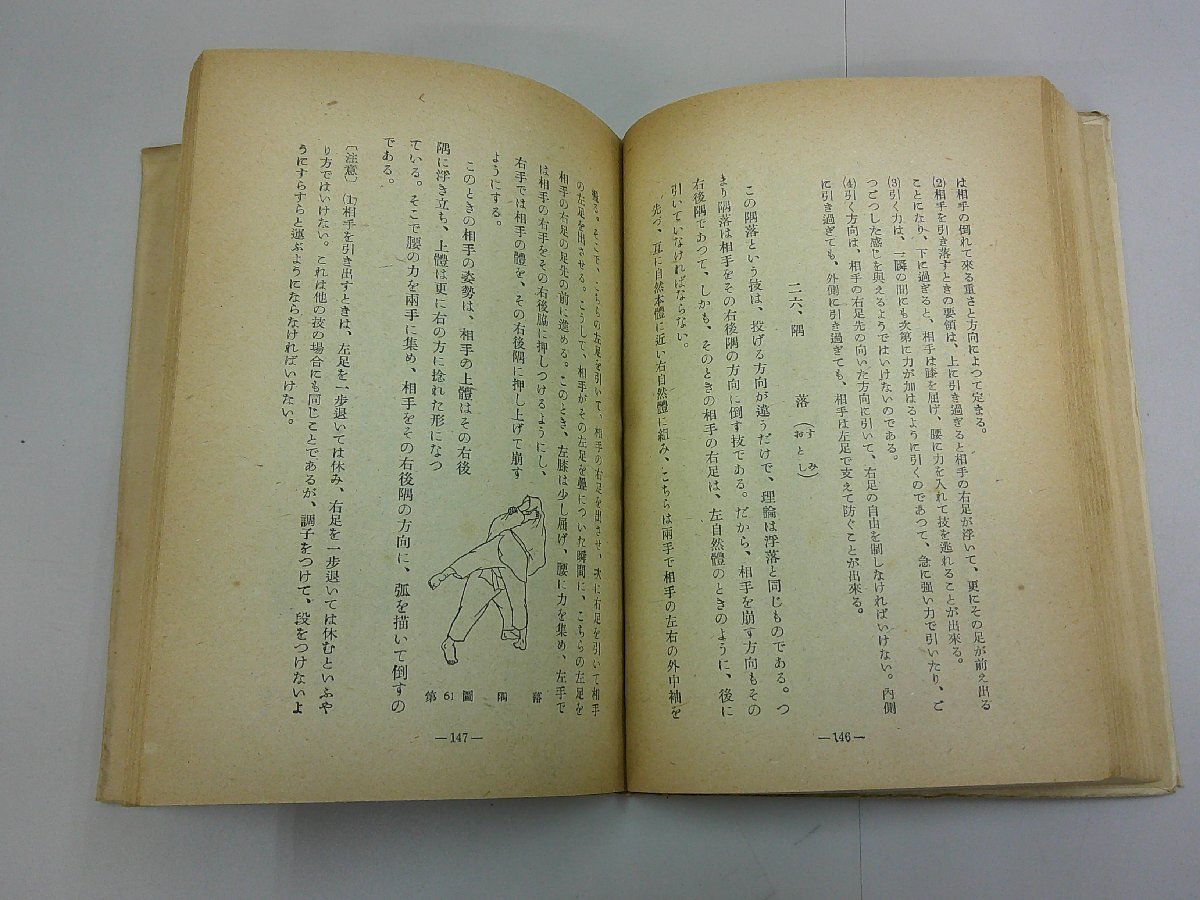 は相手の倒れて來る重さと方向によつて定まる。
(2)相手を引き落すときの要領は、上に引き過ぎると相手の右足が浮いて、更にその足が前え出る
ことになり、下に過ぎると、相手は膝を屈げ、腰に力を入れて技を逃れることが出來る。
(3)引く力は、一瞬の間にも次第に力が加はるように引くのであつて、急に强い力で引いたり、ご
つごつした感じを與えるようではいけないのである。
(4)引く方向は、相手の右足先の向いた方向に引いて、右足の自由を制しなければいけない。內側
に引き過ぎても、外側に引き過ぎても、相手は左足で支えて防ぐことが出來る。
二六、隅落(すみおとし)
この隅落という技は、投げる方向が違うだけで、理論は浮落と同じものである。つ
まり隅落は相手をその右後隅の方向に倒す技である。だから、相手を崩す方向もその
右後隅であつて、しかも、そのときの相手の右足は、左自然體のときのように、後に
引いていなければならない。
先づ、互に自然本體に近い右自然體に組み、こちらは兩手で相手の左右の外中袖を
—146—
握る。そこで、こちらの左足を引いて、相手の右足を出させ、次に右足を引いて相手
の左足を出させる。こうして、相手がその左足を疊についた瞬間に、こちらの左足を
相手の右足の足先の前に進める。このとき、左膝は少し屈げ、腰に力を集め、左手で
は相手の右手をその右後脇に押しつけるようにし、
右手では相手の體を、その右後隅に押し上げて崩す
ようにする。
このときの相手の姿勢は、相手の上體はその右後
隅に浮き立ち、上體は更に右の方に捻れた形になつ
ている。そこで腰の力を兩手に集め、相手をその右後隅の方向に、弧を描いて倒すの
である。
〔注意〕(1)相手を引き出すときは、左足を一步退いては休み、右足を一步退いては休むといふや
り方ではいけない。これは他の技の場合にも同じことであるが、調子をつけて、段をつけないよ
うにすらすらと運ぶようにならなければいけない。
第61圖 隅落
—147—